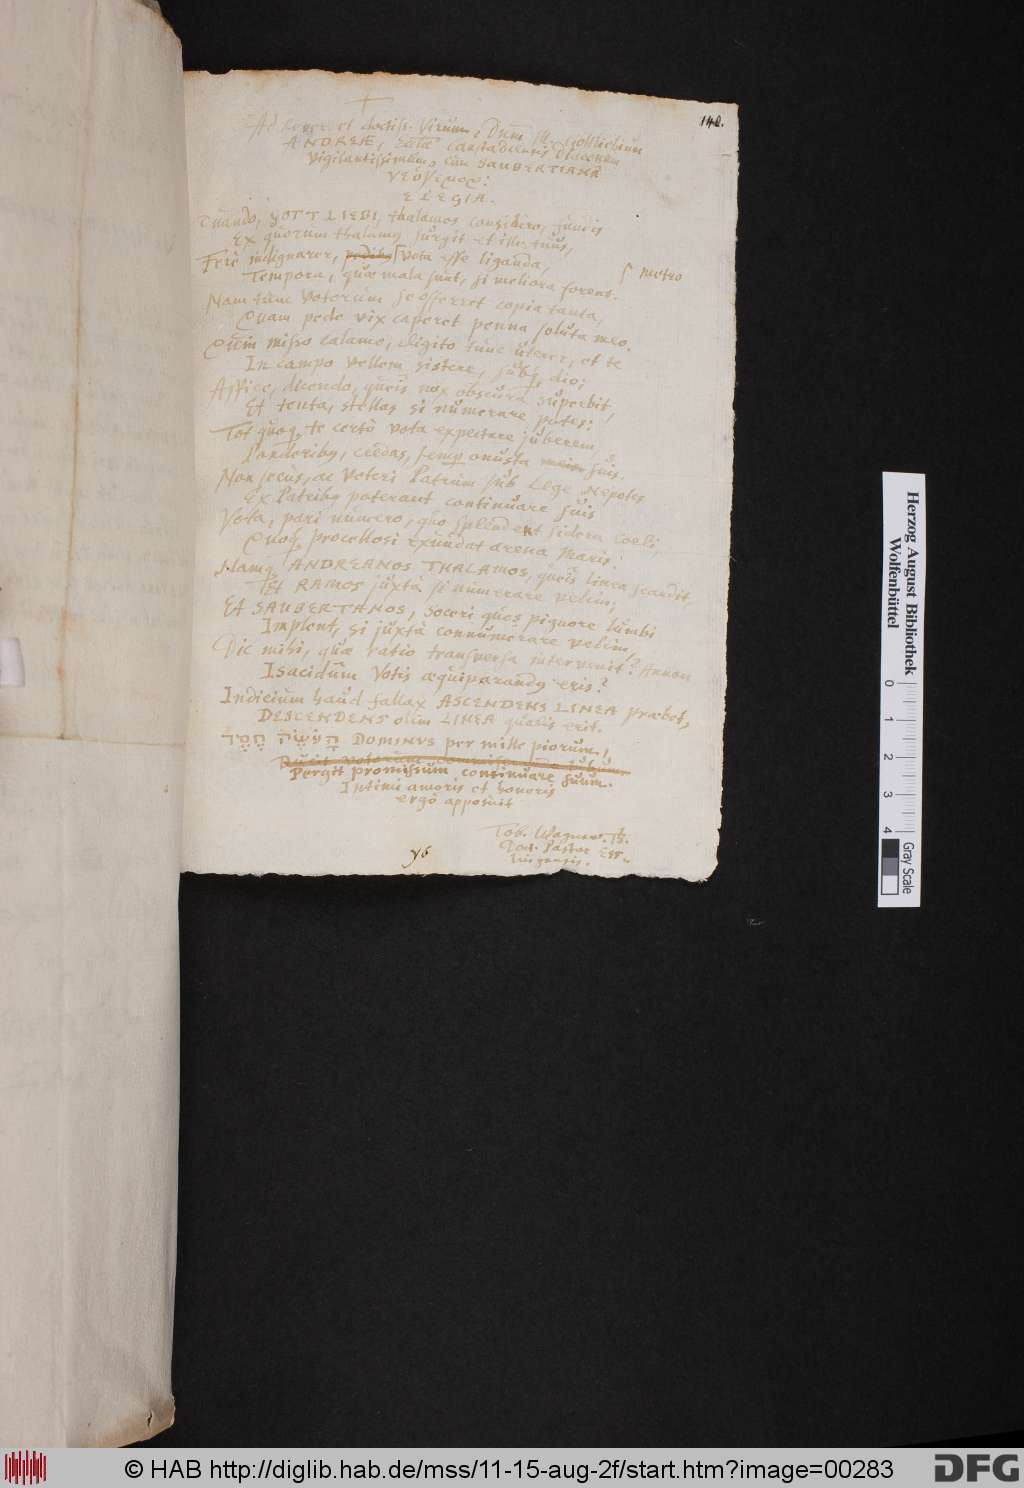 148.
Ad Rever. et doctiss. Virum, Dnm M. Gottliebum
ANDREÆ, Ecclæ Canstadiensis Diaconum
vigilantissimum, cum SAUBERTIANA
νεόγαμον:
ELEGIA.
Quando, GOTTLIEBI, thalamos considero, fundis
Ex quorum thalamus surgit et iste tuus,
Ferè indignarer, pedibus ⌈vota esse liganda, ⌈ metro
Tempora, quæ mala sunt, si meliora forent.
Nam tunc votorum se offerret copia tanta,
Quam pede vix caperet penna soluta meo.
Quin misso calamo, digito tunc uterer, et te
In campo vellem sistere, subq; dio;
Aspice, dicendo, queis nox obscura superbit,
Et tenta, stellas si numerare potes:
Tot quoq; te certò vota expectare juberem,
Ponderibus, credas, semp onusta suis.
Non secùs, ac veteri Patrum sub Lege Nepotes
Ex Patribus poterant continuare suis
Vota, pari numero, quo splendent sidera Coeli,
Quoq; procellosi exundat arena Maris.
Namq; ANDREANOS THALAMOS, queis linea scandit,
Et RAMOS juxtà si numerare velim,
Et SAUBERTANOS, soceri quos pignore lumbi
Implent, si juxtà connumerare velim,
Dic mihi, quæ ratio transversa intervenit? Annon
Isacidum Votis æquiparandus eris?
Indicium haud fallax ASCENDENS LINEA præbet,
DESCENDENS olim LINEA qualis erit.
הָעֹשֶׂה חֶסֶד DOMINVS per mille piorum,
Pergit promissum continuare suum.
Intimi amoris et honoris
ergò apposuit
Tob. Wagner, D.
Pastor Ess-
lingensis.
Herzog August Bibliothek
Wolfenbüttel
0 1 2 3 4
Gray Scale
© HAB http://diglib.hab.de/mss/11-15-aug-2f/start.htm?image=00283
DFG